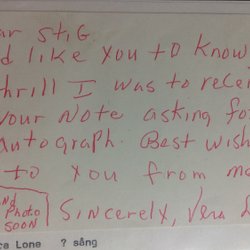 ar Stig.
d like you to know
thrill I was to rece
your note asking for
autograph. Best wish
to you from m
Photo
soon
Sincerely, Vera
Lone ? sång